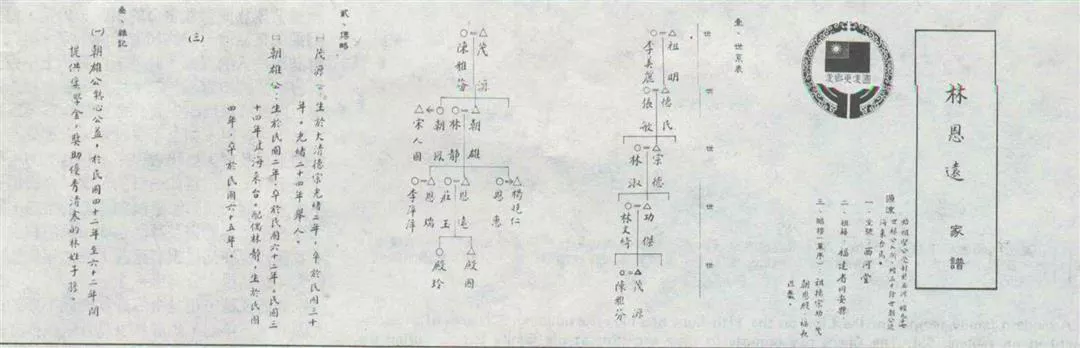 林恩遠 家譜
愛鄉更愛國
源流
一、堂號:西河堂
二、祖籍:福建省同安縣
壹、世系表
世
世
世
世
祖明
李美麗
德民
張敏
宗德
林淑
功傑
林文婷
茂源
陳雅芬
茂源
陳雅芬
朝雄
林靜
朝以
宋人國
楊挺仁
恩惠
恩遠
莊玉
恩瑞
李萍萍
殿國
殿玲
貳、傳略
㈠茂源公:生於大清德宗光緒二年,卒於民國三十
年。光緒二十四年舉人。
㈡朝雄公:生於民國二年,卒於民國六十二年。民國三
十四年渡海來台。配偶林靜,生於民國
四年,卒於民國六十五年。
㈢
叁、雜記
㈠朝雄公熱心公益,於民國四十二年至六十二年間
提供獎學金,獎助優秀清寒的林姓子孫。